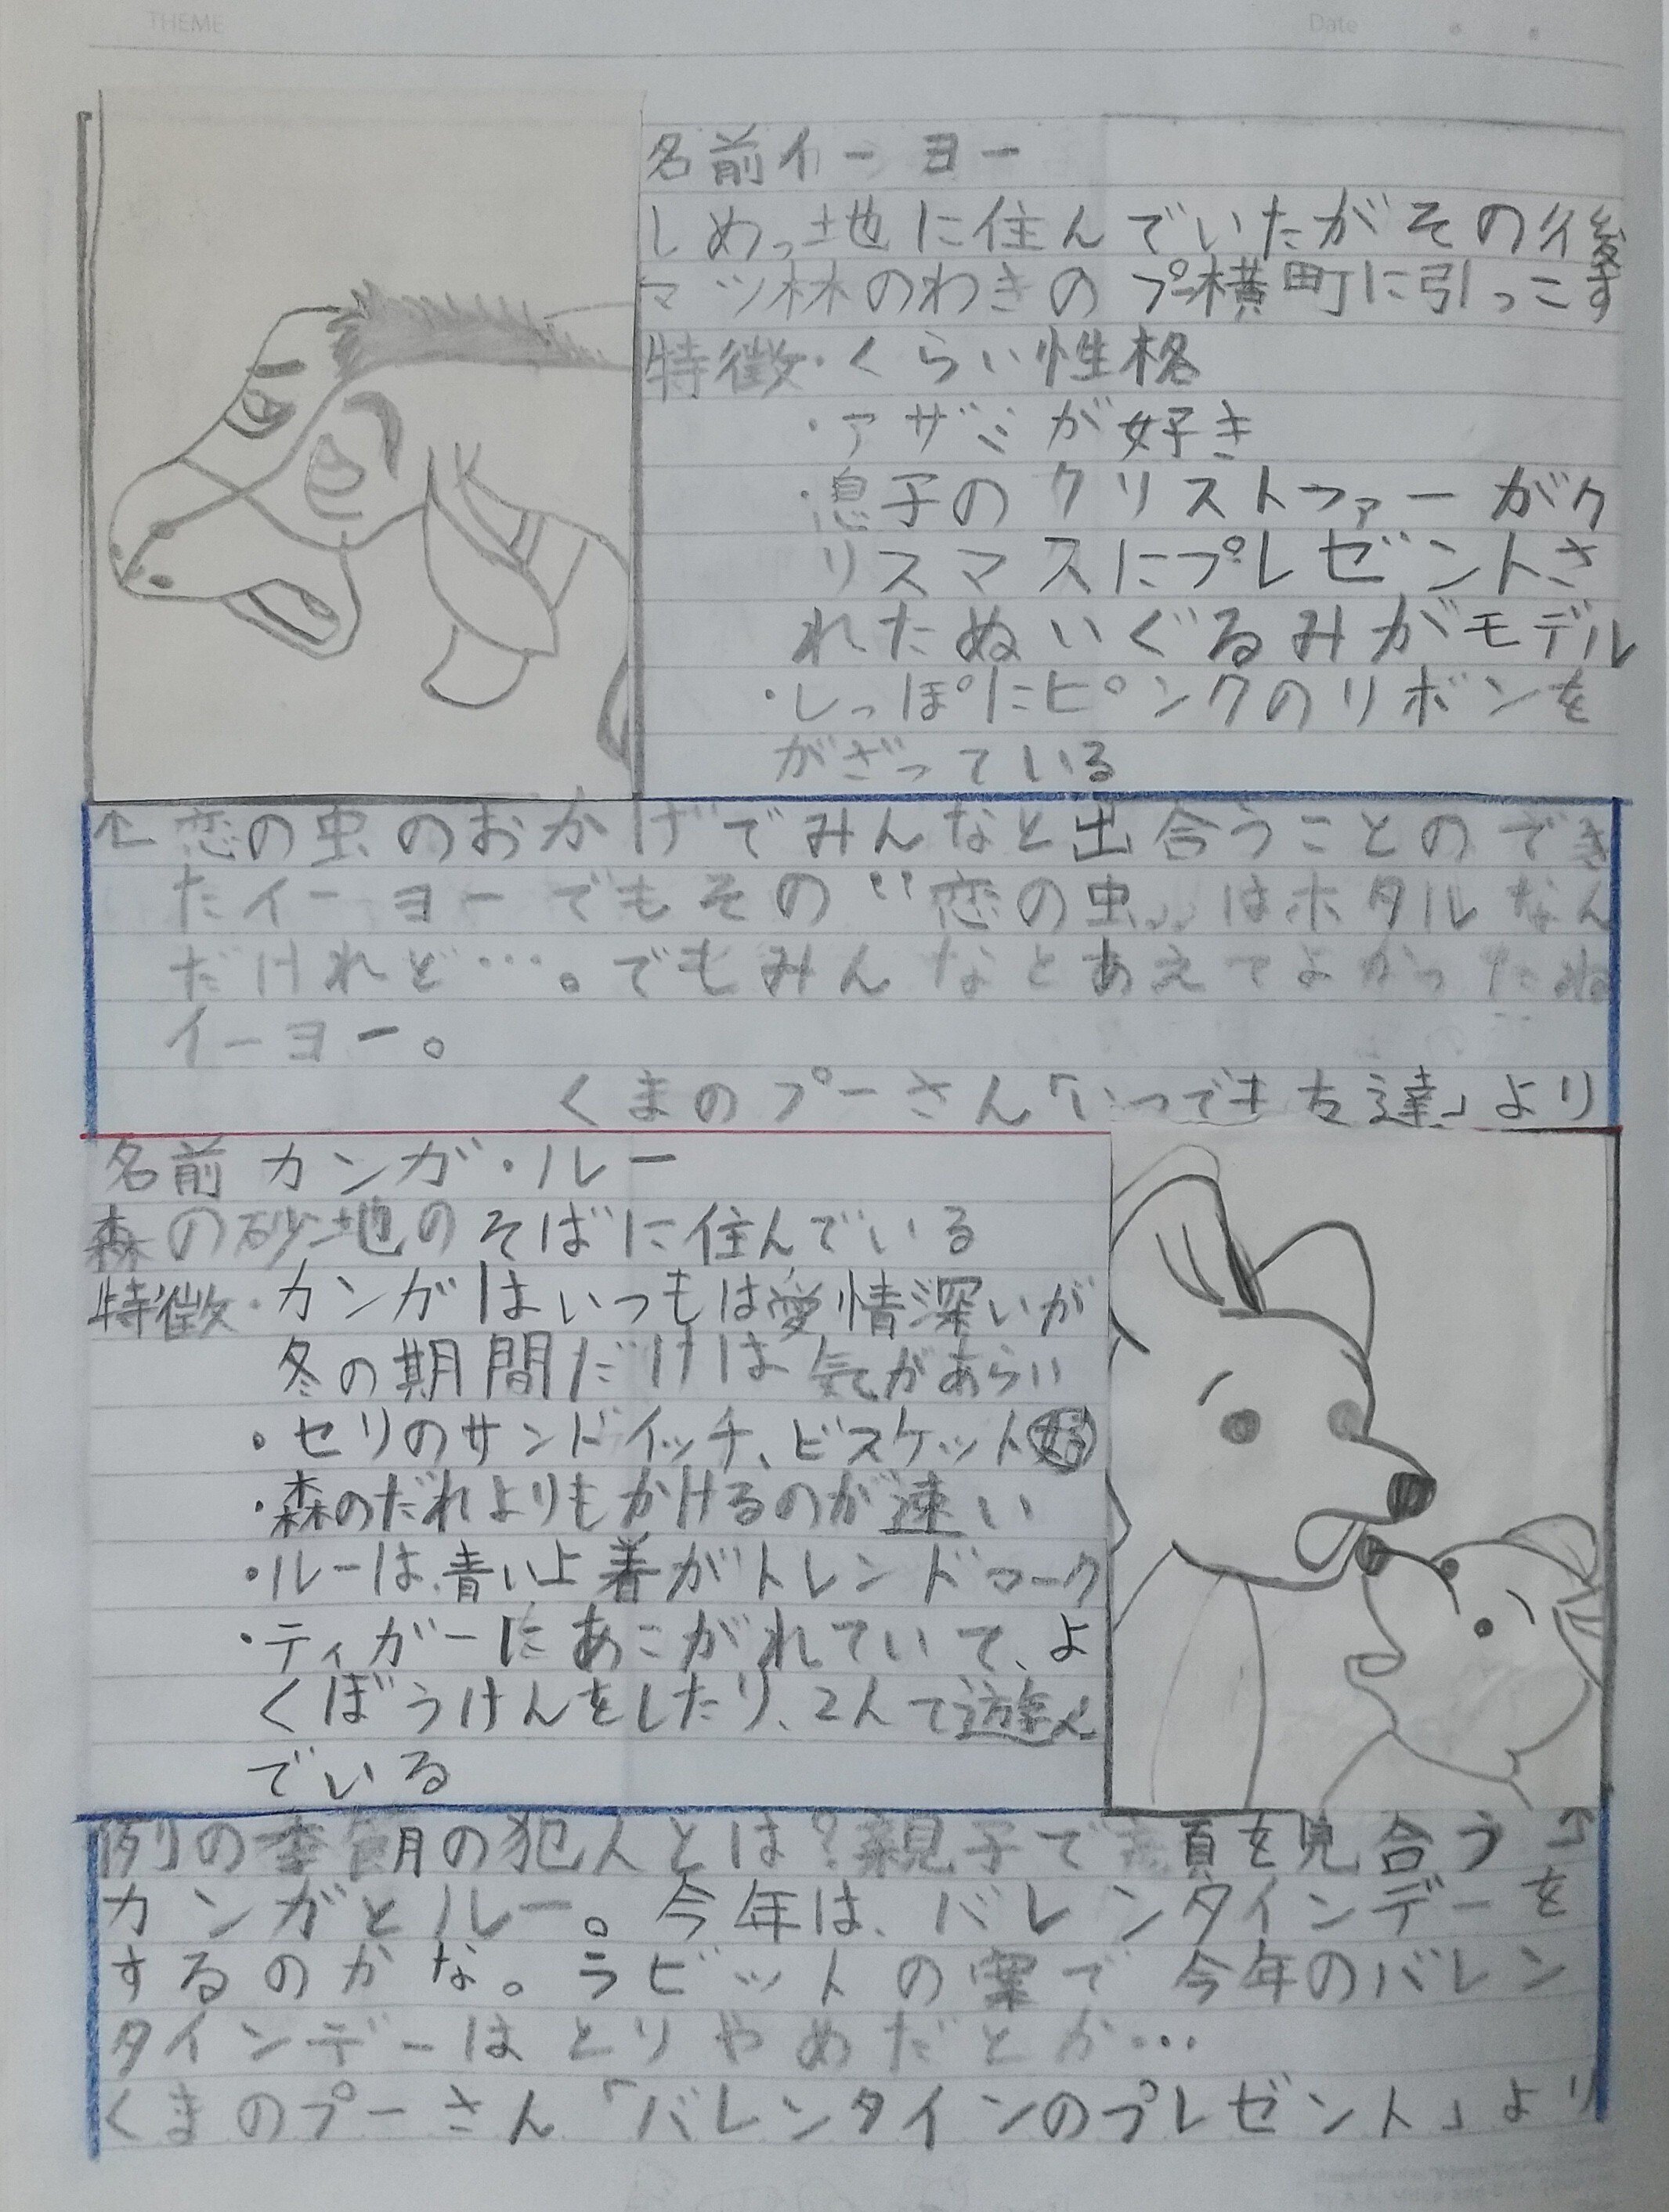 THEME
Date
名前イーヨー
しめっ地に住んでいたがその後
マツ林のわきのプー横町に引っこす
特徴・くらい性格
・アザミが好き
・息子のクリストファーがク
リスマスにプレゼントさ
れたぬいぐるみがモデル
・しっぽにピンクのリボンを
がざっている
↑恋の虫のおかげでみんなと出合うことのでき
たイーヨーでもその〝恋の虫〟はホタルなん
だけれど…。でもみんなとあえてよかったね
イーヨー。
くまのプーさん「いつでも友達」より
名前 カンガ・ルー
森の砂地のそばに住んでいる
特徴・カンガはいつもは愛情深いが
冬の期間だけは気があらい
・セリのサンドイッチ、ビスケット好
・森のだれよりもかけるのが速い
・ルーは、青い上着がトレンドマーク
・ティガーにあこがれていて、よ
くぼうけんをしたり、2人で遊ん
でいる
例の の犯人とは?親子で を見合う↑
カンガとルー。今年は、バレンタインデーを
するのかな。ラビットの案で今年のバレン
タインデーはとりやめだとか…
くまのプーさん「バレンタインのプレゼント」より